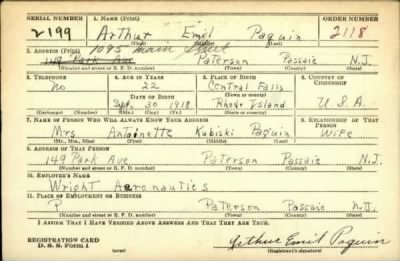 SERIAL NUMBER 1. NAME (Print) ORDER NUMBER
2199 Arthur Emil Paquin 2118
(First) (Middle) (Last)
2. ADDRESS (Print) 1095 Main Street
149 Park Ave Paterson Passaic N.J.
(Number and street or R. F. D. number) (Town) (County) (State)
3. TELEPHONE 4. AGE IN YEARS 5. PLACE OF BIRTH 6. COUNTRY OF CITIZENSHIP
No 22 Central Falls
DATE OF BIRTH (Town or county)
Sept. 30 1918 Rhode Island U.S.A.
(Exchange) (Number) (Mo.) (Day) (Yr.) (State or country)
7. NAME OF PERSON WHO WILL ALWAYS KNOW YOUR ADDRESS 8. RELATIONSHIP OF THAT PERSON
Mrs Antoinette Kubiski Paquin Wife
(Mr., Mrs., Miss) (First) (Middle) (Last)
9. ADDRESS OF THAT PERSON
149 Park Ave Paterson Passaic N.J.
(Number and street or R. F. D. number) (Town) (County) (State)
10. EMPLOYER'S NAME
Wright Aeronautics
11. PLACE OF EMPLOYMENT OR BUSINESS
Paterson Passaic N.J.
(Number and street or R. F. D. number) (Town) (County) (State)
I AFFIRM THAT I HAVE VERIFIED ABOVE ANSWERS AND THAT THEY ARE TRUE.
REGISTRATION CARD
D. S. S. Form 1 (over) Arthur Emil Paquin
(Registrant's signature)